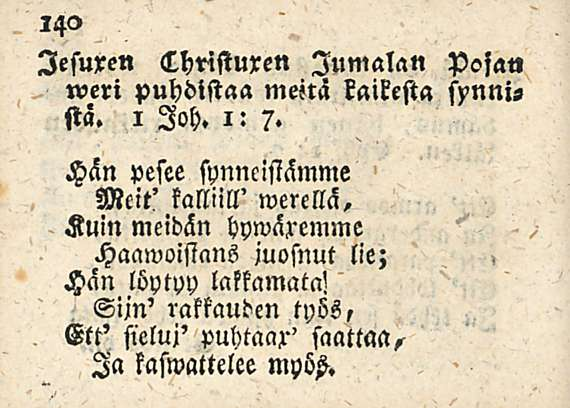 140
Jesuxen Christuxen Jumalan Pojan
weri puhdistaa meitä kaikesta synni⸗
stä. 1 Joh. 1: 7.
Hän pesee synneistämme
Meit' kalliill' werellä,
Kuin meidän hywäxemme
Haawoistans juosnut lie;
Hän löytyy lakkamata!
Sijn' rakkauden työs,
Ett' sieluj' puhtaax' saattaa,
Ja kaswattelee myös.